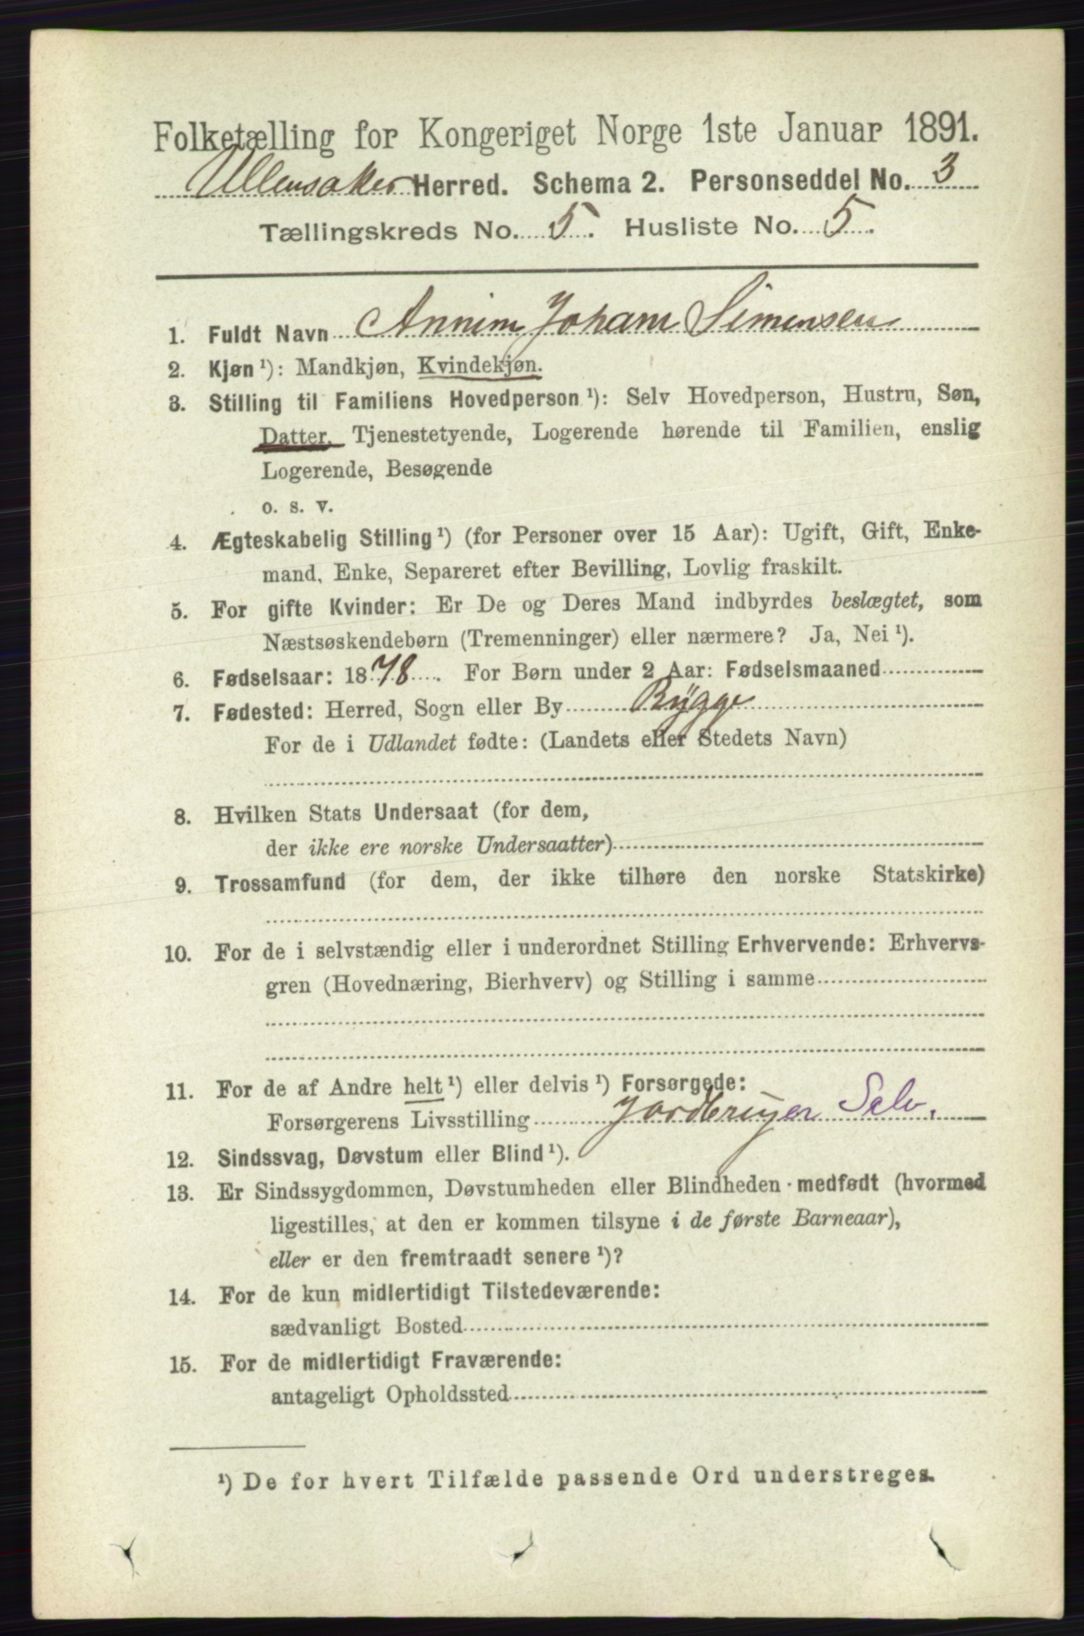 Folketælling for Kongeriget Norge 1ste Januar 1891.
Ullensaker Herred. Schema 2. Personseddel No. 3
Tællingskreds No. 5. Husliste No. 5.
1. Fuldt Navn Annine Johane Simensen
2. Kjøn ¹): Mandkjøn, Kvindekjøn.
3. Stilling til Familiens Hovedperson ¹): Selv Hovedperson, Hustru, Søn,
Datter, Tjenestetyende, Logerende hørende til Familien, enslig
Logerende, Besøgende
o. s. v.
4. Ægteskabelig Stilling ¹) (for Personer over 15 Aar): Ugift, Gift, Enke-
mand, Enke, Separeret efter Bevilling, Lovlig fraskilt.
5. For gifte Kvinder: Er De og Deres Mand indbyrdes beslægtet, som
Næstsøskendebørn (Tremenninger) eller nærmere? Ja, Nei ¹).
6. Fødselsaar: 1878. For Børn under 2 Aar: Fødselsmaaned
7. Fødested: Herred, Sogn eller By Rygge
For de i Udlandet fødte: (Landets eller Stedets Navn)
8. Hvilken Stats Undersaat (for dem,
der ikke ere norske Undersaatter)
9. Trossamfund (for dem, der ikke tilhøre den norske Statskirke)
10. For de i selvstændig eller i underordnet Stilling Erhvervende: Erhvervs-
gren (Hovednæring, Bierhverv) og Stilling i samme
11. For de af Andre helt ¹) eller delvis ¹) Forsørgede:
Forsørgerens Livsstilling Jordbruger Selv.
12. Sindssvag, Døvstum eller Blind ¹).
13. Er Sindssygdommen, Døvstumheden eller Blindheden medfødt (hvormed
ligestilles, at den er kommen tilsyne i de første Barneaar),
eller er den fremtraadt senere ¹)?
14. For de kun midlertidigt Tilstedeværende:
sædvanligt Bosted
15. For de midlertidigt Fraværende:
antageligt Opholdssted
¹) De for hvert Tilfælde passende Ord understreges.